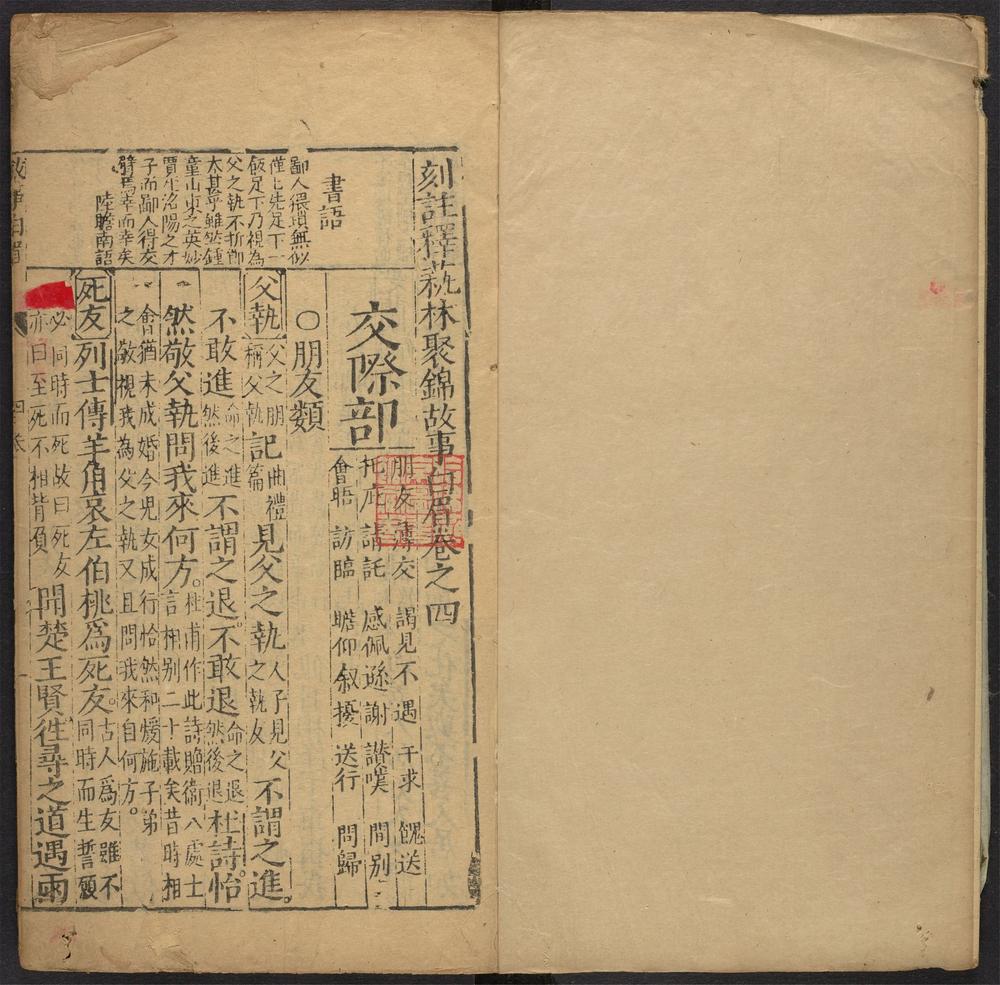 刻註釋蓺林聚錦故事白眉卷之四
書語
鄙人猥瑣無似
僅仁先足下一
飯足下乃視為
父之執不折節
太甚乎雖然鍾
童山東之英妙
賈生洛陽之才
子而鄙人得交
臂焉幸而幸矣
陸瞻南語
交際部
朋友薄交 謁見不遇 干求 餽送
托庇請託 感佩遜謝 讚嘆 間別
會晤 訪臨 瞻仰叙擾 送行 問歸
○朋友類
父執 父之朋稱父執 記曲禮篇 見父之執人子見父之執友 不謂之進
不敢進命之進然後進不謂之退不敢退命之退然後退杜詩怡
然敬父執問我來何方杜甫作此詩贈衛八處士言相別二十載矣昔時相
會猶未成婚今兒女成行恰然和煖施子弟
之敬視我為父之執又且問我來自何方
死友 列士傳羊角哀左伯桃爲死友古人爲友雖不同時而生誓願
必同時而死故曰死友亦曰至死不相背負 聞楚王賢徃尋之道遇雨